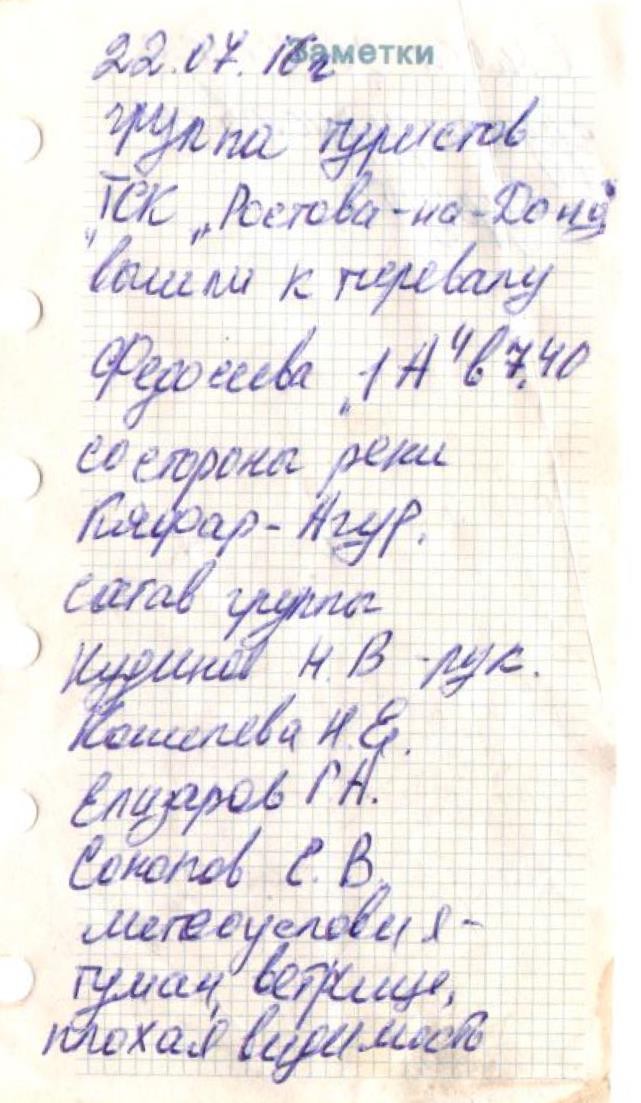 Заметки
22.07.16г
группа туристов
"ТСК „Ростова-на-Дону"
вышли к перевалу
Федосеева „1А" в 7.40
со стороны реки
Кяфар-Агур.
состав группы
Кудинов Н.В -рук.
Кошелева Н.Е.
Елизаров Г.А.
Соколов С.В.
метеоусловия-
туман, ветрище,
плохая видимость